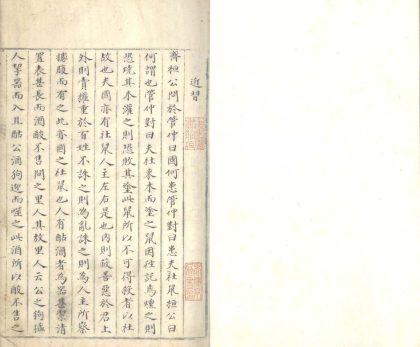 近習
齊桓公問於管仲曰國何患管仲對曰患夫社鼠桓公曰
何謂也管仲對曰夫社束木而塗之鼠因往託焉燻之則
恐燒其木灌之則恐敗其塗此鼠所以不可得殺者以社
故也夫國亦有社鼠人主左右是也內則蔽善惡於君上
外則賣權重於百姓不誅之則為亂誅之則為人主所察
據腹而有之此亦國之社鼠也人有酤酒者為器甚潔清
置表甚長而酒酸不售問之里人其故里人云公之狗猛
人挈器而入且酤公酒狗迎而噬之此酒所以酸不售之